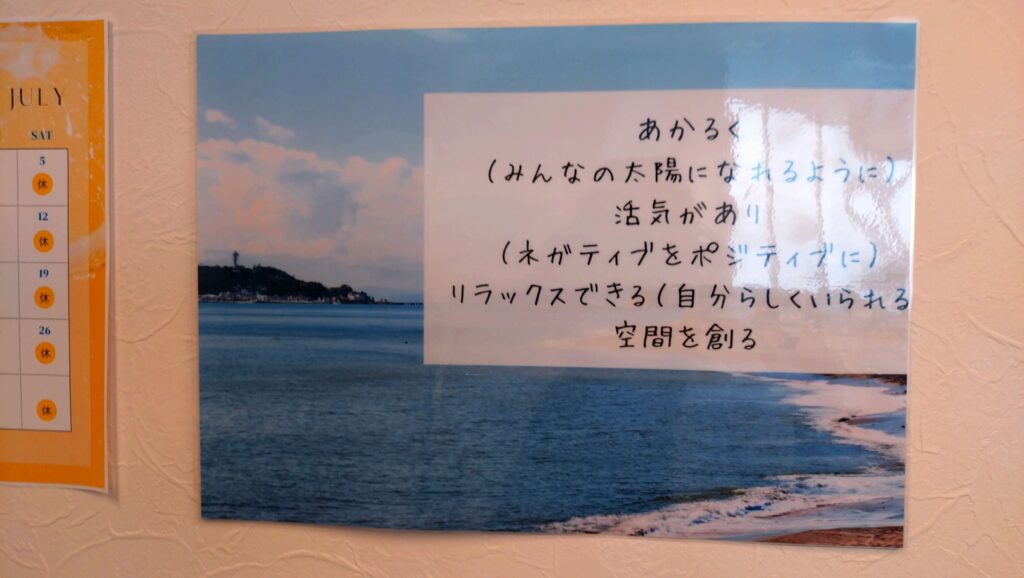 JULY
SAT
5
休
12
休
19
休
26
休
休
あかるく
(みんなの太陽になれるように)
活気があり
(ネガティブをポジティブに)
リラックスできる(自分らしくいられる
空間を創る